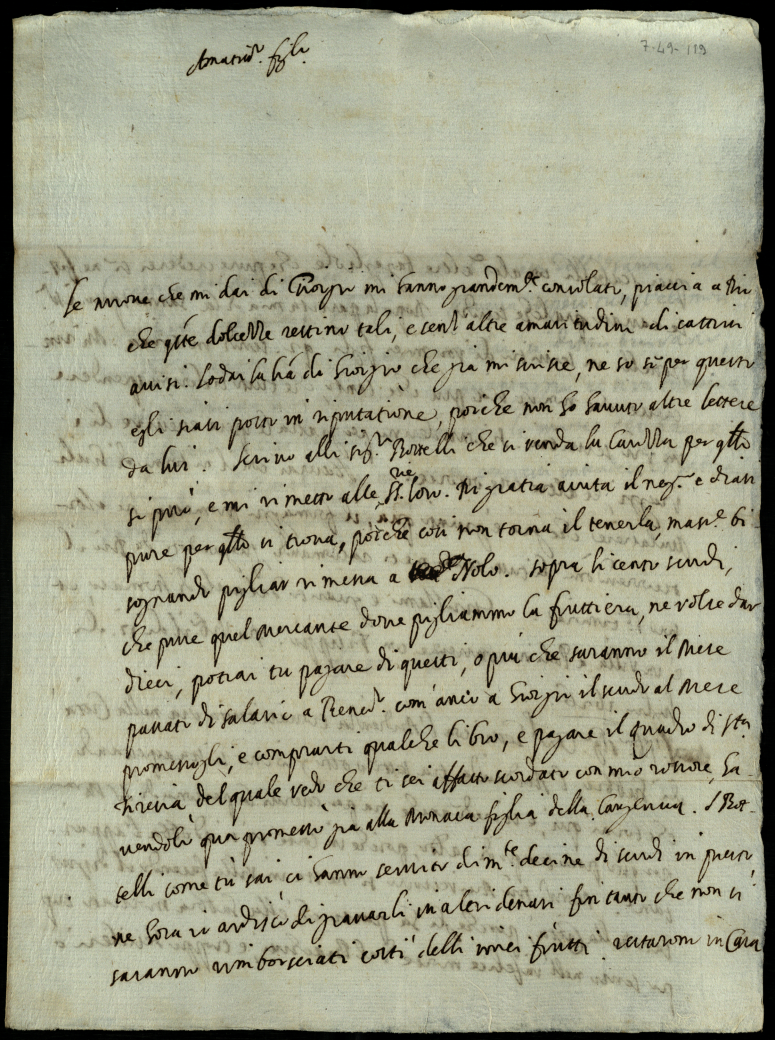 7-49-119
Amatiss.º figlo.
Le nuove che mi dai di Giorgio mi hanno grandem.te consolato, piaccia a Dio
che q.ste dolcezze restino tali, e senz'altre amaritudini di cattivi
avisi. Lodai la hà di Giorgio che già mi scrisse, ne so se per questo
egli siasi posto in riputatione, poiche non ho havuto altre lettere
da lui. Scrivo alli sig.ri Borselli che si venda la Carozza per q.llo
si può, e mi rimetto alle SS. loro. Di gratia aiuta il neg.o e diasi
pure per q.llo si trova, poiche così non torna il tenerla, mass.e bi-
sognando pigliar rimessa a Nolo. sopra li cento scudi,
che pure quel Mercante dove pigliammo la fruttiera, ne volse dar
dieci, potrai tu pagare di questi, o più che saranno il Mese
passato di salario a Bened.º com'anco a Giorgio il scudo al Mese
promessogli, e comprarti qualche libro, e pagare il quadro di S.ta
Teresia, del quale vedo che ti sei affatto scordato con mio rossore, ha-
vendolo promesso già alla Monaca figlia della. I Bor-
selli come tu sai ci hanno servito di m.te decine di scudi in presto,
ne hora io ardisco di gravarli in altri denari fin tanto che non si
saranno rimborsciati costì delli miei frutti restarono in Casa